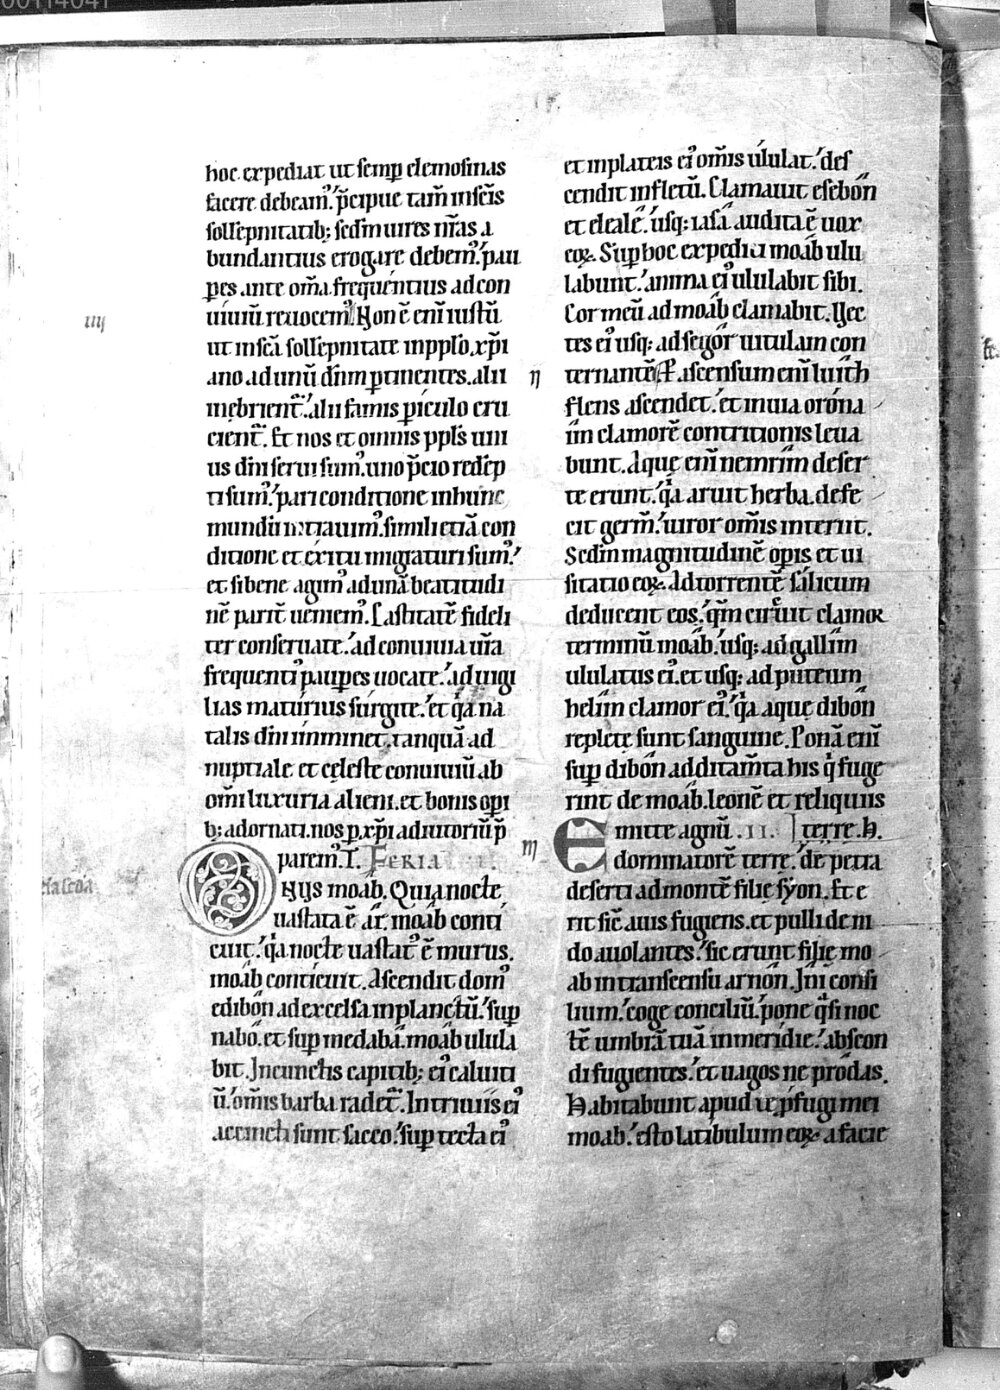 00114041
hoc expediat ut semp elemosinas
facere debeam᷒. p̄cipue tam̄ in sc̄is
sollēpnitatib; sed in uires nr̄as a
bundantius erogare debem᷒. pau
peres ante om̄a frequentius ad con
uiuiū reuocem᷒. Non ē enī iustū
iiij
ut in sc̄a sollēpnitate in pplo xp̄i
ano ad unū dn̄m ptinentes. alii
inebrient᷑. alii famis piculo cru
cient᷑. Et nos et omnis ppls uni
us dn̄i serui sum᷒. uno p̄cio redēp
ti sum᷒. pari conditione in hunc
mundū intrauim᷒. simili etiā con
ditione et exitu migraturi sum᷒.
et si bene agim᷒ ad unā beatitudi
nē parit̄ ueniem᷒. Castitatē fideli
ter conseruate. ad conuiuia ur̄a
frequenti᷒ paupes uocate. ad uigi
lias maturius surgite. et q̄a na
talis dn̄i imminet. tanquā ad
nuptiale et celeste conuiuiū ab
om̄i luxuria alieni. et bonis opi
b; adornati. nos p xp̄i adiutoriū p̄
parem᷒. I. FERIA
feria scda
Onus moab. Quia nocte
uastata ē ar. moab conti
cuit. q̄a nocte uastat᷒ ē murus.
moab conticuit. Ascendit dom᷒
et dibon ad excelsa in planctū. sup
nabo. et sup medaba. moab ulula
bit. In cunctis capitib; ei᷒ caluiti
ū. om̄is barba radet᷑. In triuiis ei᷒
accincti sunt sacco. sup tecta ei᷒
et in plateis ei᷒ om̄is ululat. des
cendit in fletū. Clamauit esebon
et eleale. usq; iasa audita ē uox
eoꝝ. Sup hoc expediti moab ulu
labunt. anima ei᷒ ululabit sibi.
Cor meū ad moab clamabit. Uec
tes ei᷒ usq; ad segor uitulam con
ternantē. P ascensum enī luith
flens ascendet. et in uia orona
im clamorē contritionis leua
bunt. Aque enī nemrim deser
te erunt. q̄a aruit herba. defe
cit germ᷒. uiror om̄is interiit.
Scdm magnitudinē opis et ui
sitatio eoꝝ. Ad torrentē salicum
ducent eos. qm̄ circuit clamor
terminū moab. usq; ad gallim
ululatus ei᷒. et usq; ad puteum
helim clamor ei᷒. q̄a aque dibon
replete sunt sanguine. Ponā enī
sup dibon additam̄ta his q̄ fuge
rint de moab. leonē et reliquiis
terre. H.
Emitte agnū .II.
dominatorē terre. de petra
deserti ad montē filie syon. Et e
rit sic̄ auis fugiens. et pulli de ni
do auolantes. sic erunt filie mo
ab in transcensu arnon. Ini consi
lium. coge conciliū. pone q̄si noc
tē umbrā tuā in meridie. abscon
di fugientes. et uagos ne prodas.
Habitabunt apud te p̄fugi mei
moab. esto latibulum eoꝝ a facie